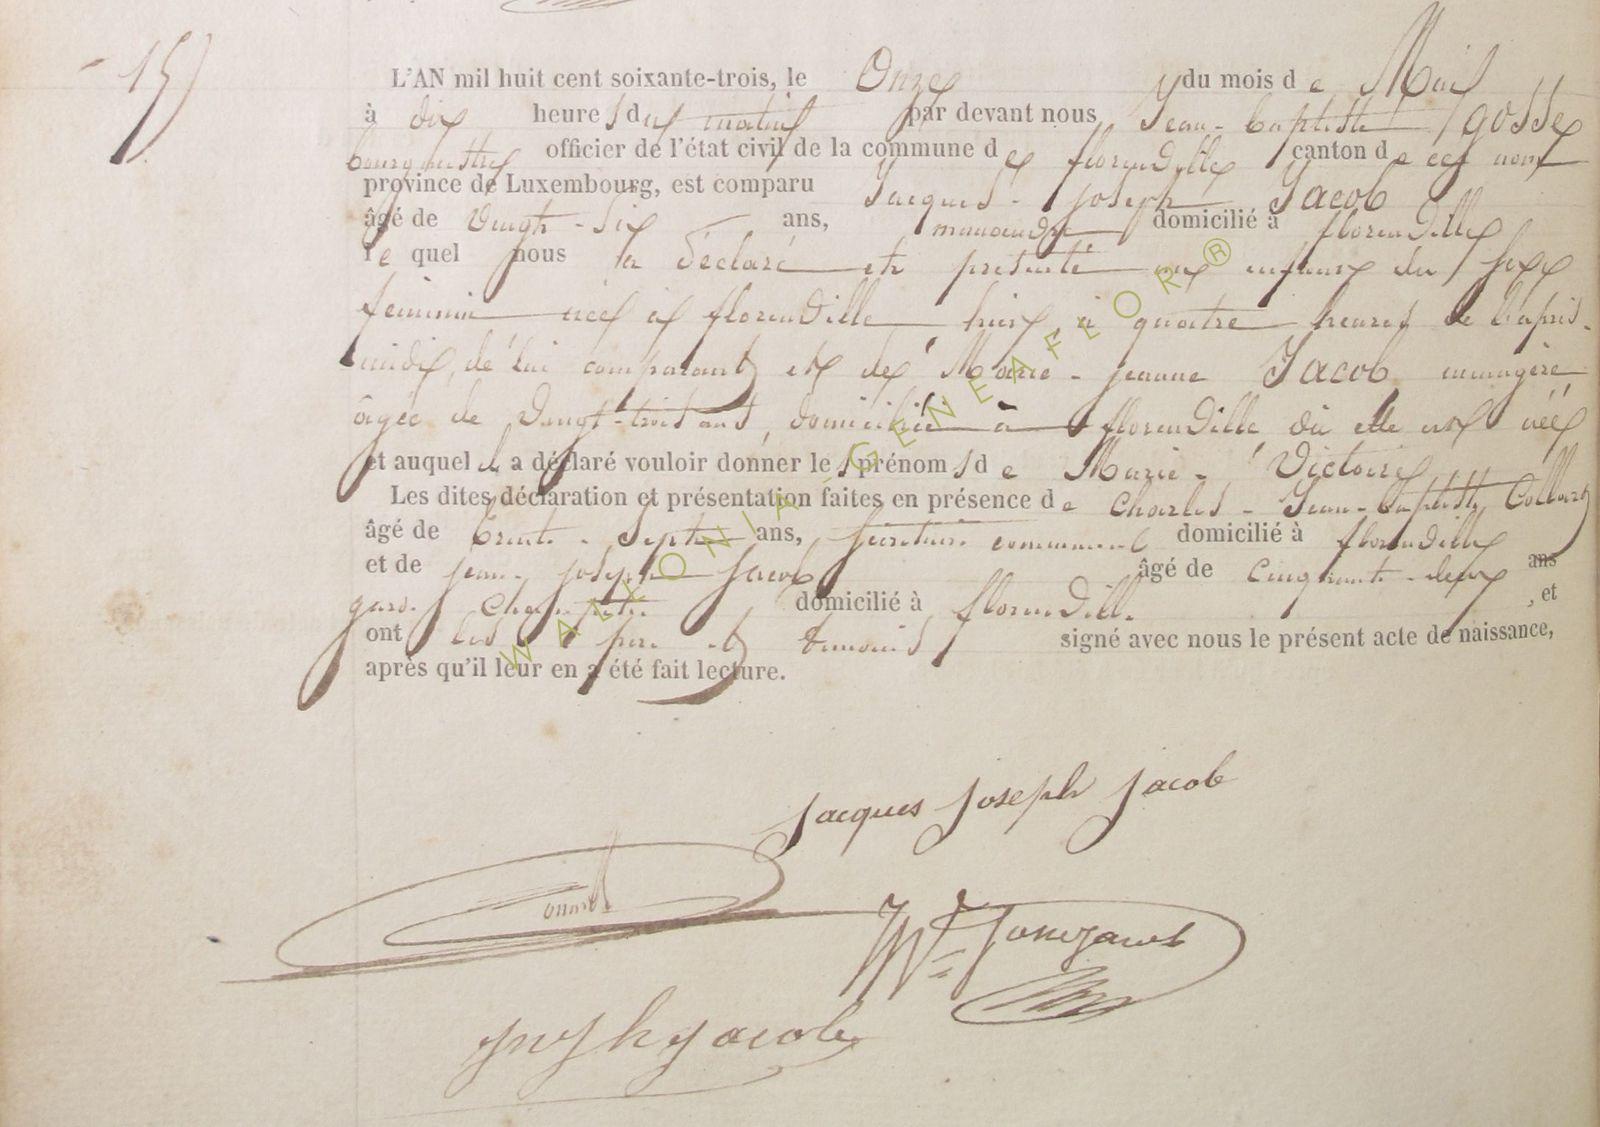 15
L'AN mil huit cent soixante-trois, le Onze du mois de Mai
à dix heures du matin par devant nous Jean-baptiste Gosse
bourgmestre officier de l'état civil de la commune de florenville canton de ce nom
province de Luxembourg, est comparu Jacques-joseph Jacob
âgé de vingt-six ans, manoeuvre domicilié à florenville
le quel nous a déclaré et présenté un enfant du sexe
féminin née à florenville hier à quatre heures de l'après-
midi, de lui comparant et de Marie-jeanne Jacob ménagère
âgée de vingt-trois ans, domiciliée à florenville où elle est née
et auquel il a déclaré vouloir donner les prénoms de Marie-Victoire
Les dites déclaration et présentation faites en présence de Charles-Jean-baptiste Collart
âgé de trente-sept ans, secrétaire communal domicilié à florenville
et de jean-joseph Jacob âgé de cinquante-deux ans
garde champêtre domicilié à florenville, et
ont les père et témoins signé avec nous le présent acte de naissance,
après qu'il leur en a été fait lecture.
WALLONIA-GENEAFLOR®
jacques joseph jacob
jacob